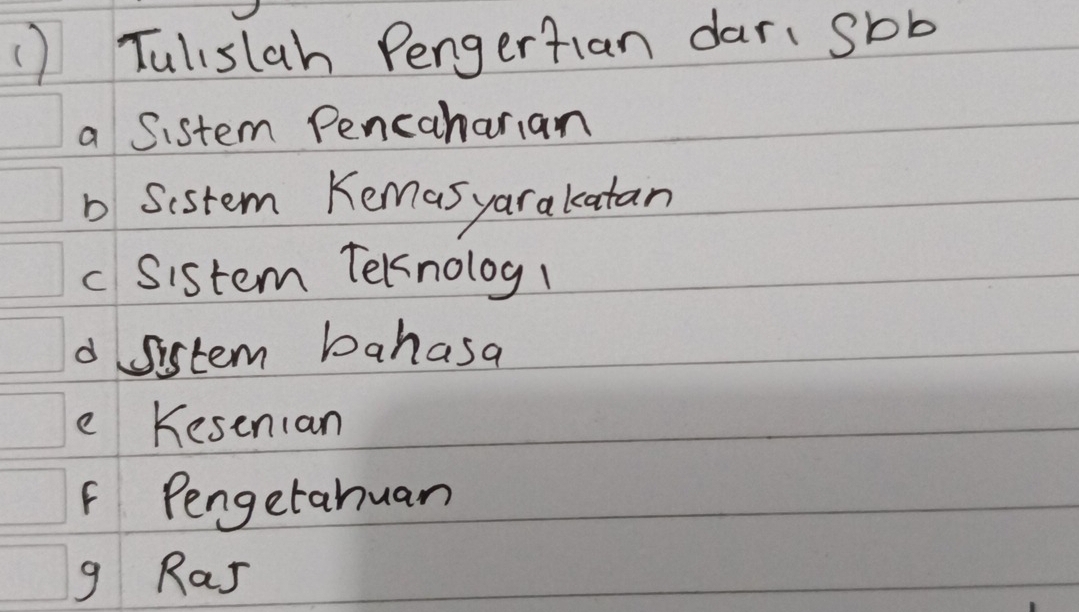 1) Tulislah Pengertian dari Sbb
a Sistem Pencaharian
b Sistem Kemasyarakatan
c Sistem Teknologi
d Sistem bahasa
e Kesenian
f Pengetahuan
g Ras